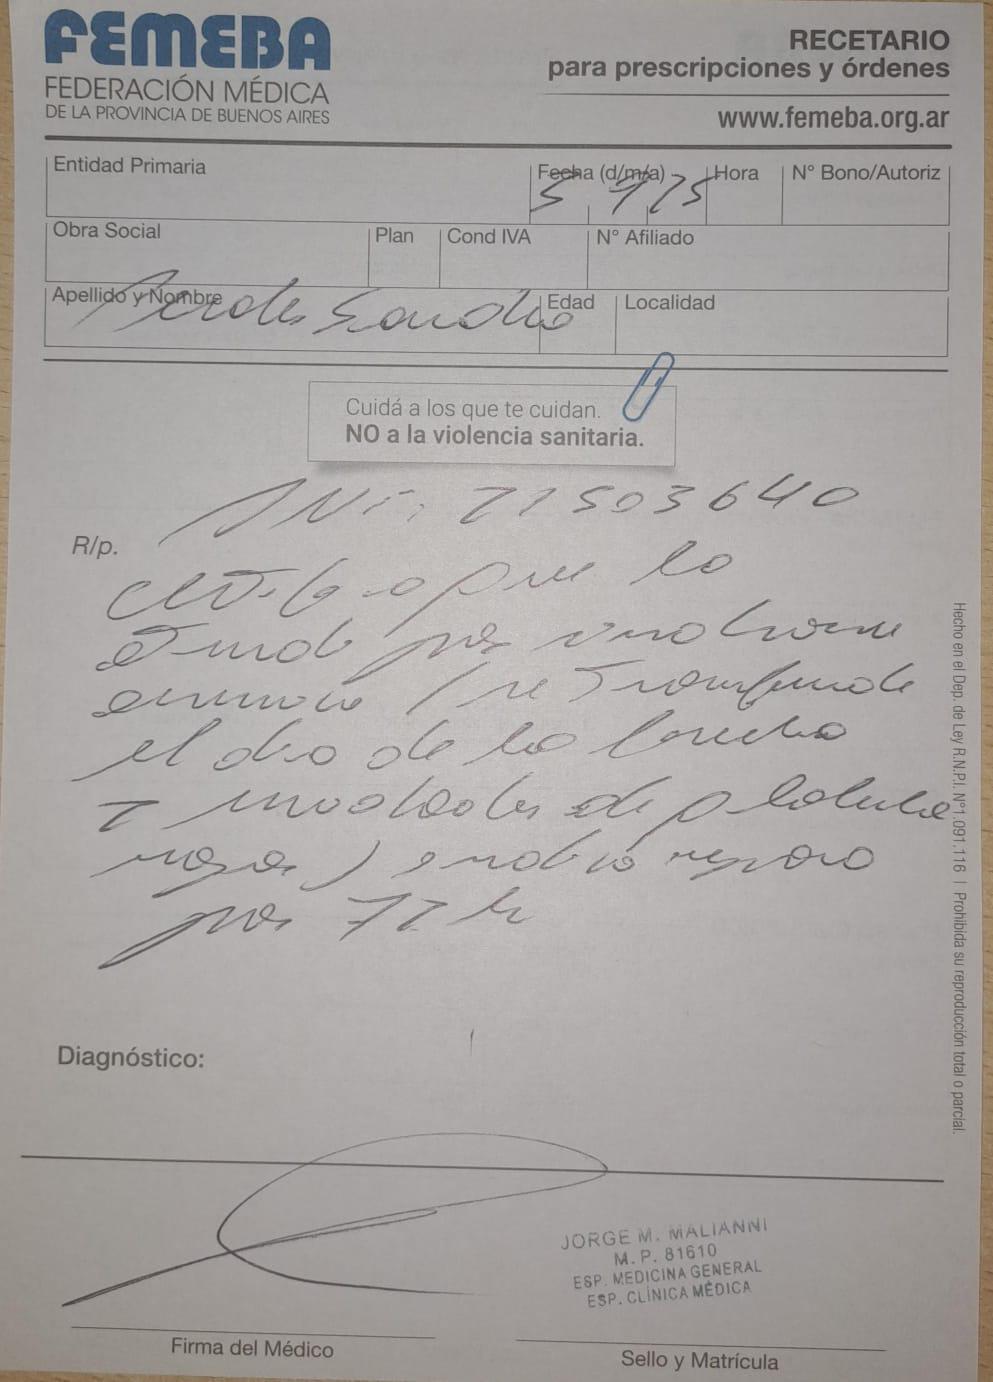 FEMEBA
FEDERACIÓN MÉDICA
DE LA PROVINCIA DE BUENOS AIRES
RECETARIO
para prescripciones y órdenes
www.femeba.org.ar
Entidad Primaria
Fecha (d/m/a)
5 9 25
Hora
N° Bono/Autoriz
Obra Social
Plan
Cond IVA
N° Afiliado
Apellido y Nombre
Sandra
Edad
Localidad
Cuidá a los que te cuidan.
NO a la violencia sanitaria.
DNI: 21503640
R/p.
que lo
por
/ se Transfunde
el dia de la fecha
2 unidades de
rojos ) reposo
por 72 h
Hecho en el Dep. de Ley R.N.P.I. N°1.091.116 | Prohibida su reproducción total o parcial.
Diagnóstico:
JORGE M. MALIANNI
M.P. 81610
ESP. MEDICINA GENERAL
ESP. CLÍNICA MÉDICA
Firma del Médico
Sello y Matrícula